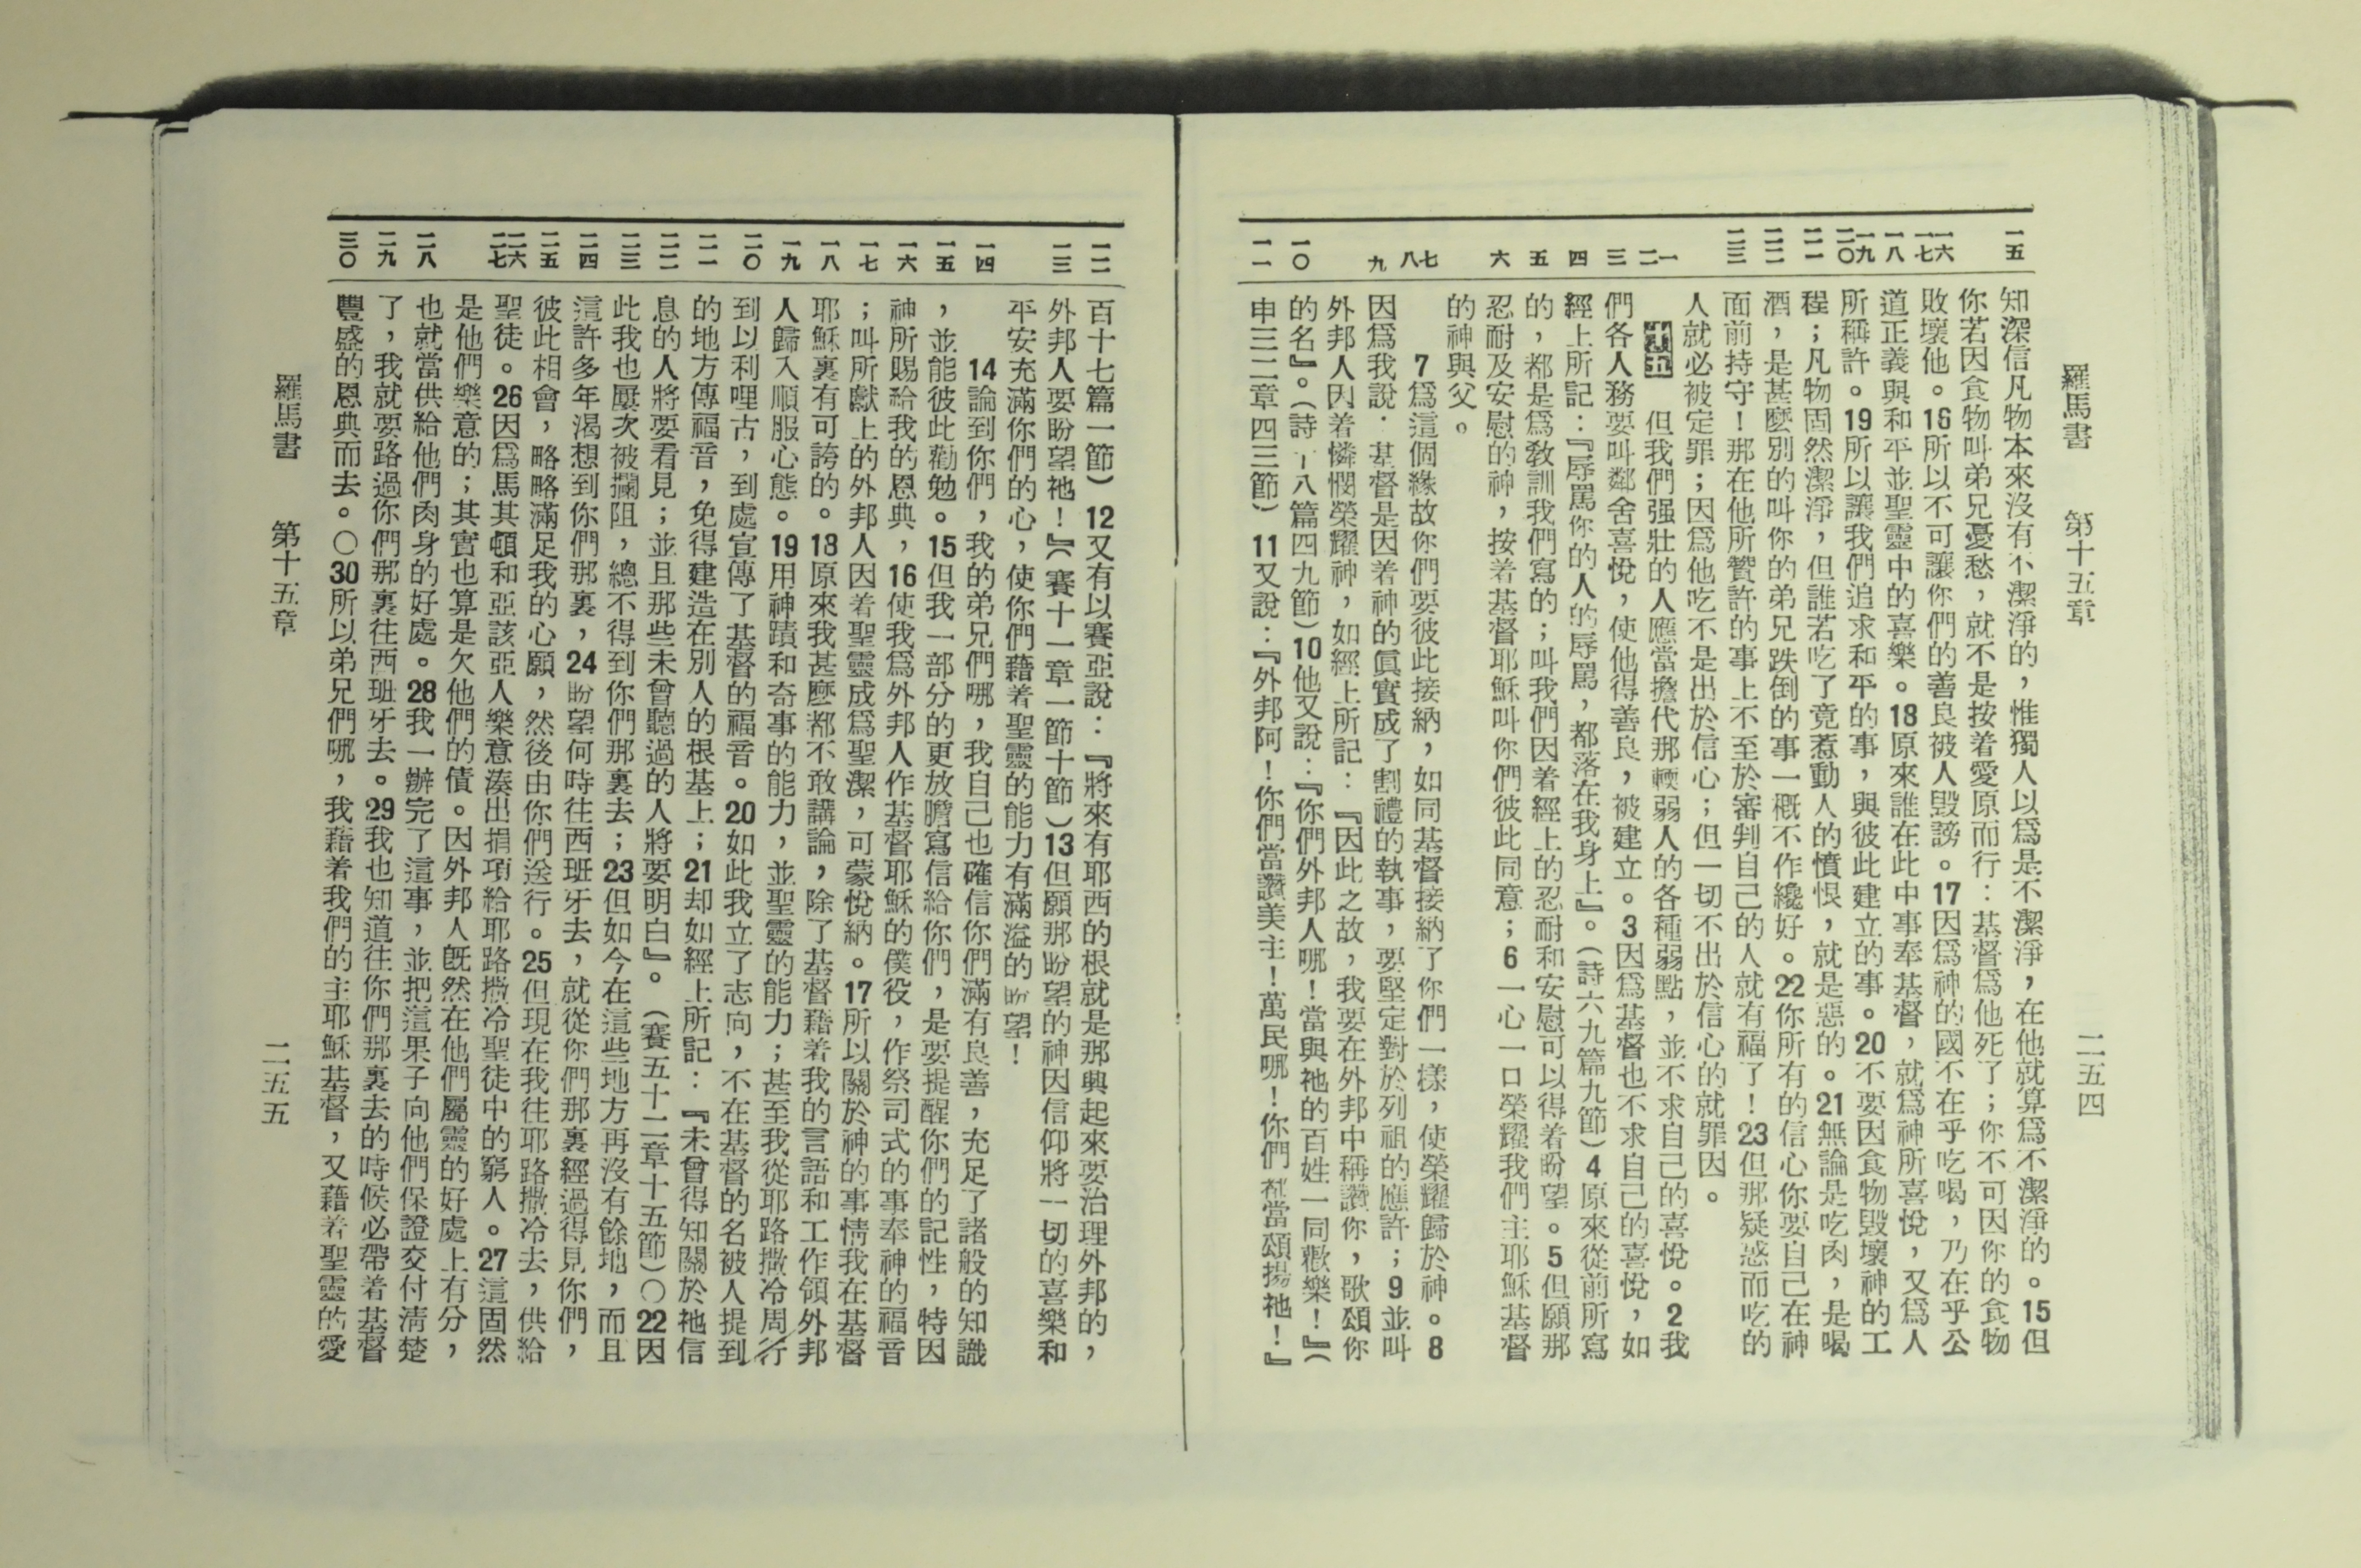 羅馬書 第十五章 二五四
一五 一六 一七 一八 一九 二〇 二一 二二 二三 一 二 三 四 五 六 七 八 九 一〇 一一
知深信凡物本來沒有不潔淨的，惟獨人以爲是不潔淨，在他就算爲不潔淨的。15但
你若因食物叫弟兄憂愁，就不是按着愛原而行：基督爲他死了；你不可因你的食物
敗壞他。16所以不可讓你們的善良被人毀謗。17因爲神的國不在乎吃喝，乃在乎公
道正義與和平並聖靈中的喜樂。18原來誰在此中事奉基督，就爲神所喜悅，又爲人
所稱許。19所以讓我們追求和平的事，與彼此建立的事。20不要因食物毀壞神的工
程；凡物固然潔淨，但誰若吃了竟惹動人的憤恨，就是惡的。21無論是吃肉，是喝
酒，是甚麼別的叫你的弟兄跌倒的事一槪不作纔好。22你所有的信心你要自己在神
面前持守！那在他所贊許的事上不至於審判自己的人就有福了！23但那疑惑而吃的
人就必被定罪；因爲他吃不是出於信心；但一切不出於信心的就罪因。
十五 但我們强壯的人應當擔代那輭弱人的各種弱點，並不求自己的喜悅。2我
們各人務要叫鄰舍喜悅，使他得善良，被建立。3因爲基督也不求自己的喜悅，如
經上所記：『辱罵你的人的辱罵，都落在我身上』。（詩六九篇九節）4原來從前所寫
的，都是爲敎訓我們寫的；叫我們因着經上的忍耐和安慰可以得着盼望。5但願那
忍耐及安慰的神，按着基督耶穌叫你們彼此同意；6一心一口榮耀我們主耶穌基督
的神與父。
7爲這個緣故你們要彼此接納，如同基督接納了你們一樣，使榮耀歸於神。8
因爲我說：基督是因着神的眞實成了割禮的執事，要堅定對於列祖的應許；9並叫
外邦人因着憐憫榮耀神，如經上所記：『因此之故，我要在外邦中稱讚你，歌頌你
的名』。（詩十八篇四九節）10他又說：『你們外邦人哪！當與祂的百姓一同歡樂！』（
申三二章四三節）11又說：『外邦阿！你們當讚美主！萬民哪！你們都當頌揚祂！』
一二 一三 一四 一五 一六 一七 一八 一九 二〇 二一 二二 二三 二四 二五 二六 二七 二八 二九 三〇
百十七篇一節）12又有以賽亞說：『將來有耶西的根就是那興起來要治理外邦的，
外邦人要盼望祂！』（賽十一章一節十節）13但願那盼望的神因信仰將一切的喜樂和
平安充滿你們的心，使你們藉着聖靈的能力有滿溢的盼望！
14論到你們，我的弟兄們哪，我自己也確信你們滿有良善，充足了諸般的知識
，並能彼此勸勉。15但我一部分的更放膽寫信給你們，是要提醒你們的記性，特因
神所賜給我的恩典，16使我爲外邦人作基督耶穌的僕役，作祭司式的事奉神的福音
；叫所獻上的外邦人因着聖靈成爲聖潔，可蒙悅納。17所以關於神的事情我在基督
耶穌裏有可誇的。18原來我甚麼都不敢講論，除了基督藉着我的言語和工作領外邦
人歸入順服心態。19用神蹟和奇事的能力，並聖靈的能力；甚至我從耶路撒冷周行
到以利哩古，到處宣傳了基督的福音。20如此我立了志向，不在基督的名被人提到
的地方傳福音，免得建造在別人的根基上；21却如經上所記：『未曾得知關於祂信
息的人將要看見；並且那些未曾聽過的人將要明白』。（賽五十二章十五節）〇22因
此我也屢次被攔阻，總不得到你們那裏去；23但如今在這些地方再沒有餘地，而且
這許多年渴想到你們那裏，24盼望何時往西班牙去，就從你們那裏經過得見你們，
彼此相會，略略滿足我的心願，然後由你們送行。25但現在我往耶路撒冷去，供給
聖徒。26因爲馬其頓和亞該亞人樂意湊出捐項給耶路撒冷聖徒中的窮人。27這固然
是他們樂意的；其實也算是欠他們的債。因外邦人旣然在他們屬靈的好處上有分，
也就當供給他們肉身的好處。28我一辦完了這事，並把這果子向他們保證交付淸楚
了，我就要路過你們那裏往西班牙去。29我也知道往你們那裏去的時候必帶着基督
豐盛的恩典而去。〇30所以弟兄們哪，我藉着我們的主耶穌基督，又藉着聖靈的愛
羅馬書 第十五章 二五五